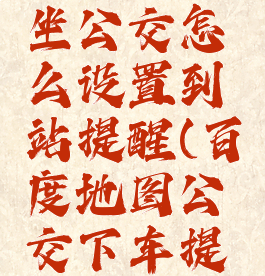 坐公交怎
么设置到
站提醒(百
度地图公
交下车提